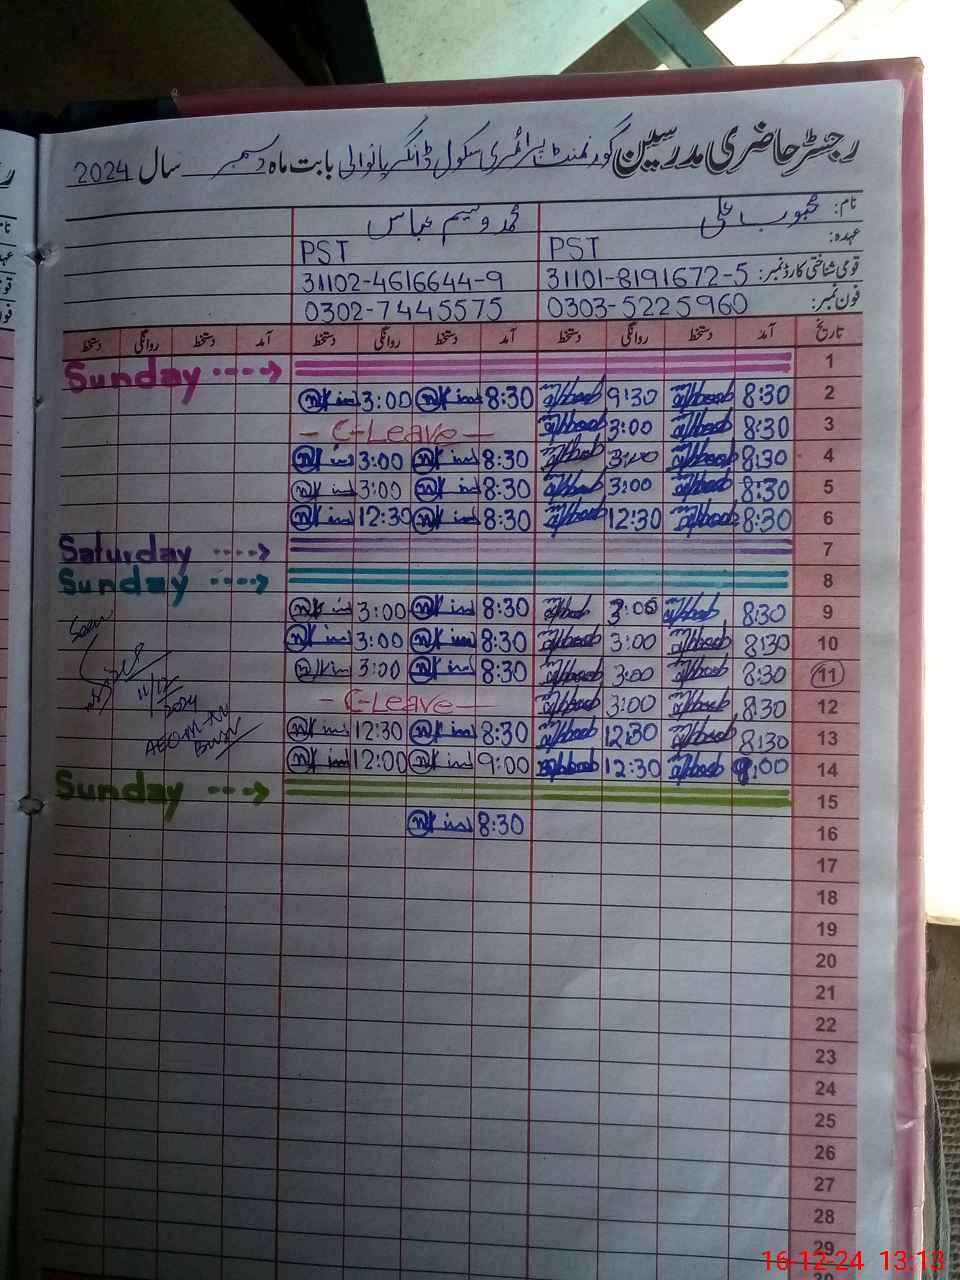 رجسٹر حاضری مدرسین گورنمنٹ پرائمری سکول ڈانگر پانوالی بابت ماہ دسمبر سال 2024
نام: محبوب علی محمد وسیم عباس
عہدہ: PST PST
قومی شناختی کارڈ نمبر: 31101-8191672-5 31102-4616644-9
فون نمبر: 0303-5225960 0302-7445575
تاریخ آمد دستخط روانگی دستخط آمد دستخط روانگی دستخط آمد دستخط روانگی دستخط
1 Sunday
2 8:30 9:30 8:30 3:00
3 8:30 3:00 C-Leave
4 8:30 3:00 8:30 3:00
5 8:30 3:00 8:30 3:00
6 8:30 12:30 8:30 12:30
7 Saturday
8 Sunday
9 8:30 3:00 8:30 3:00
10 8:30 3:00 8:30 3:00
11 8:30 3:00 8:30 3:00
Seen
11/12/2024
12 8:30 3:00 C-Leave
13 8:30 12:30 8:30 12:30
14 9:00 12:30 9:00 12:00
15 Sunday
16 8:30
17
18
19
20
21
22
23
24
25
26
27
28
29
30
16-12-24 13:13